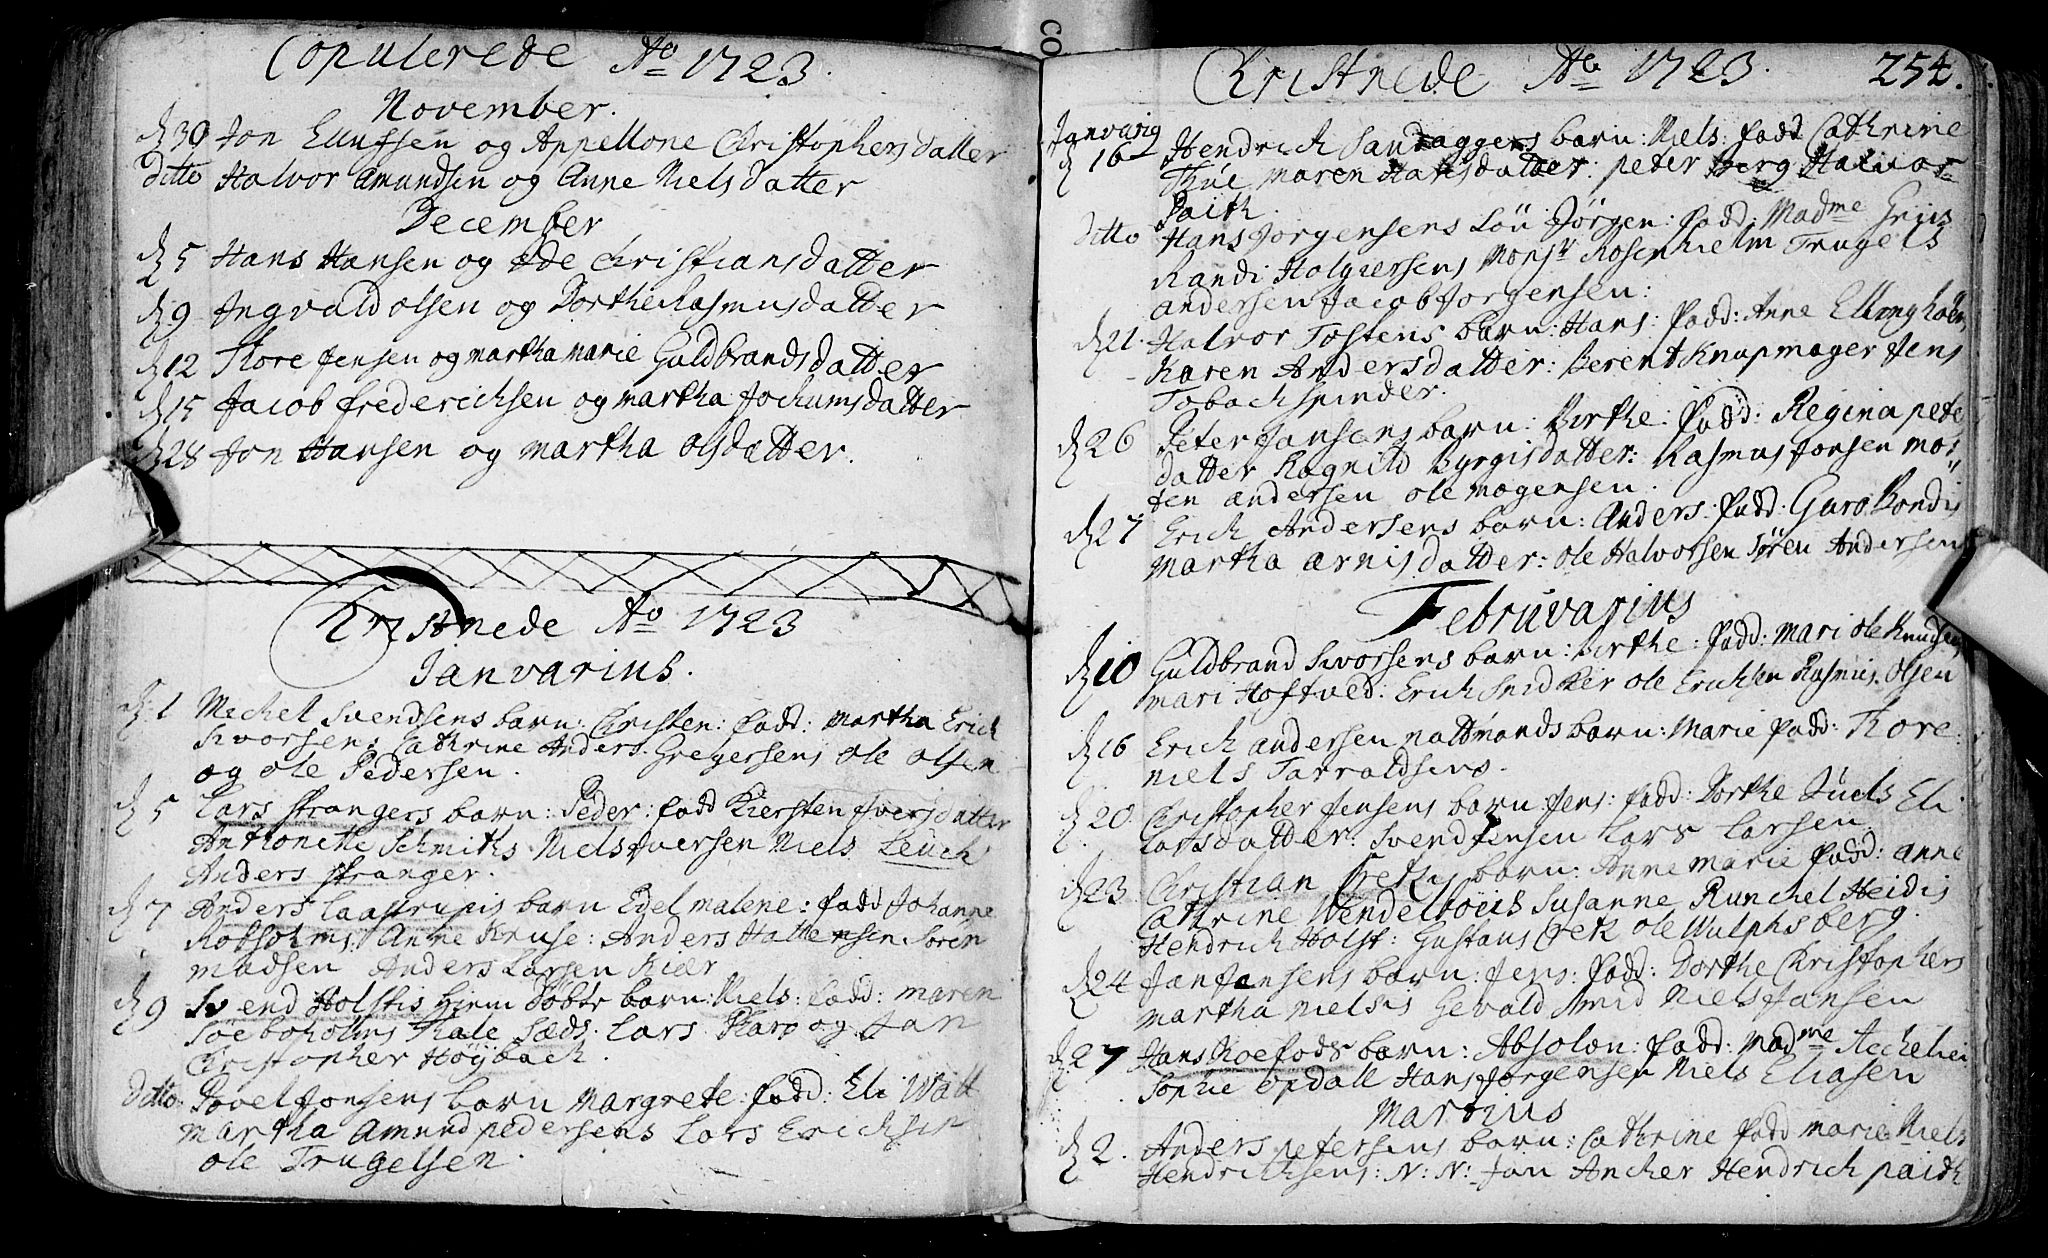 Copulerede Ao 1723.
November.
d 30 Jon Ellufsen og Appellone Christophersdatter
Ditto Halvor Amundsen og Anne Nielsdatter
December
d 5 Hans Hansen og Ede Christiansdatter
d 9 Ingvald olsen og Dorthe Rasmusdatter
d 12 Thore Jensen og martha marie Guldbrandsdatter
d 15 Jacob frederichsen og martha Jochumsdatter
d 28 Jon Hansen og martha olsdatter.
Christnede Ao 1723
Januarius.
d. 1 Michel Svendsens barn: Christen: fadd: martha Erich
Svorsens Cathrine Anders Gregersens ole olsen
og ole Pedersen.
d 5 Lars Strangers barn: Peder: fadd Kiersten Iversdatter
Anthonette Schmiths Niels Iversen Niels Leuch
Anders Stranger.
d 7 Anders Laastrupis barn Edel malene: fadd Johanne
Robsolms, Anne Kruse: Anders Hattensen Søren
madsen Anders Larsen Kiær
d 9 Svend Holstis Døbte barn: Niels: fadd: maren
Søeboholms Thale Sæds. Lars Skarp og Jan
Christopher Høybach.
Ditto Povel Jonsens barn Margrete: fadd: Eli Watt
martha Amund pedersens Lars Erichsen
ole Trugelsen.
Christnede Ao 1723. 254.
Januarij
d 16 Hendrich Sandaggers barn: Niels. fadd Cathrine
Thue maren Hansdatter: peter Berg Halvor
Paith.
Ditto Hans Jorgensens Søn Jørgen: fadd: Madme Griis
Randi Holgiersens Monsr Rosenhielm Trugels
andersen Jacob Jorgensen:
d 21. Halvor Tostens barn: Hans: fadd: Anne Ellingholm
Karen Andersdatter: Berent Knapmager Jens
Tobachspinder.
d 26 Peter Jansens barn: Birthe: fadd: Regina pete
datter Ragnild Byrgisdatter: Rasmus Jonsen mor
ten andersen ole mogensen.
d 27 Erich Andersens barn: Anders: fadd: Guro Bondis
martha arnisdatter: ole Halvorsen Søren Andersen
Februvarius
d 10 Guldbrand Svorsens barn: Birthe: fadd: mari ole Knudsens
mari Hoftved: Erich Snidker ole Erichsen Rasmus Olsen
d 16 Erich andersen nattmands barn: Marie fadd: Thore
niels Tarraldsens.
d 20. Christopher Jensens barn Jens: fadd: Dorthe Juels Eli
Larsdatter: Svend Jensen Lars Larsen
d 23. Christian Crekis barn: Anne marie fadd: anne
Cathrine Wendelboeis Susanne Runchel Heidis
Hendrich Holst: Gustaus Crek ole Wulfsberg.
d 24 Jan Jansens barn: Jens: fadd: Dorthe Christophers
martha Nielsis Gevald Smid Niels Jansen
d 27 Hans Koefods barn: Absolon: fadd: Madme Aecheleie
Sophie opdall Hans Jørgensen Niels Eliasen
Martius
d 2. Anders petersens barn: Cathrine fadd marie Niels
Hendrichsens: N: N: Jan Ancher Hendrich paith